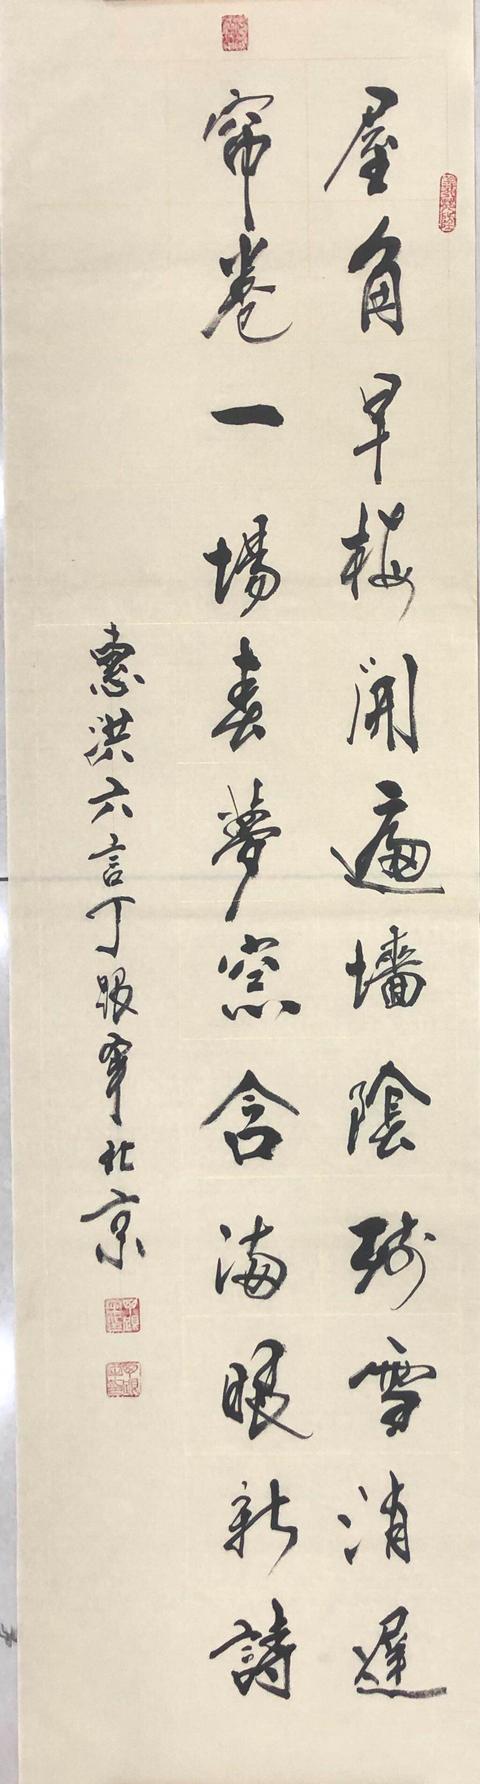 屋角早梅開遍墻陰殘雪消遲
帘卷一場春夢窓含滿眼新詩
惠洪六言丁北京